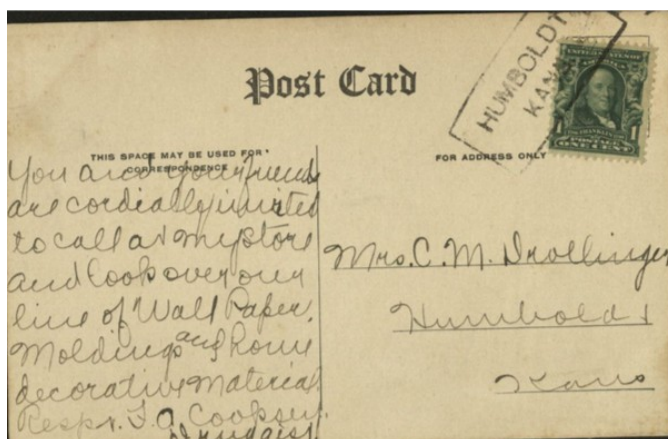 Post Card
HUMBOLDT
KANS
UNITED STATES OF
1 1
POSTAGE
ONE CENT
THIS SPACE MAY BE USED FOR
CORRESPONDENCE
FOR ADDRESS ONLY
You and your friends
are cordially invited
to call at my store
and look over our
line of Wall Paper.
Moldings and home
decorative material
Respy. Cooksey.
Druggist
Mrs. C. M. Drollinger
Humboldt
Kans